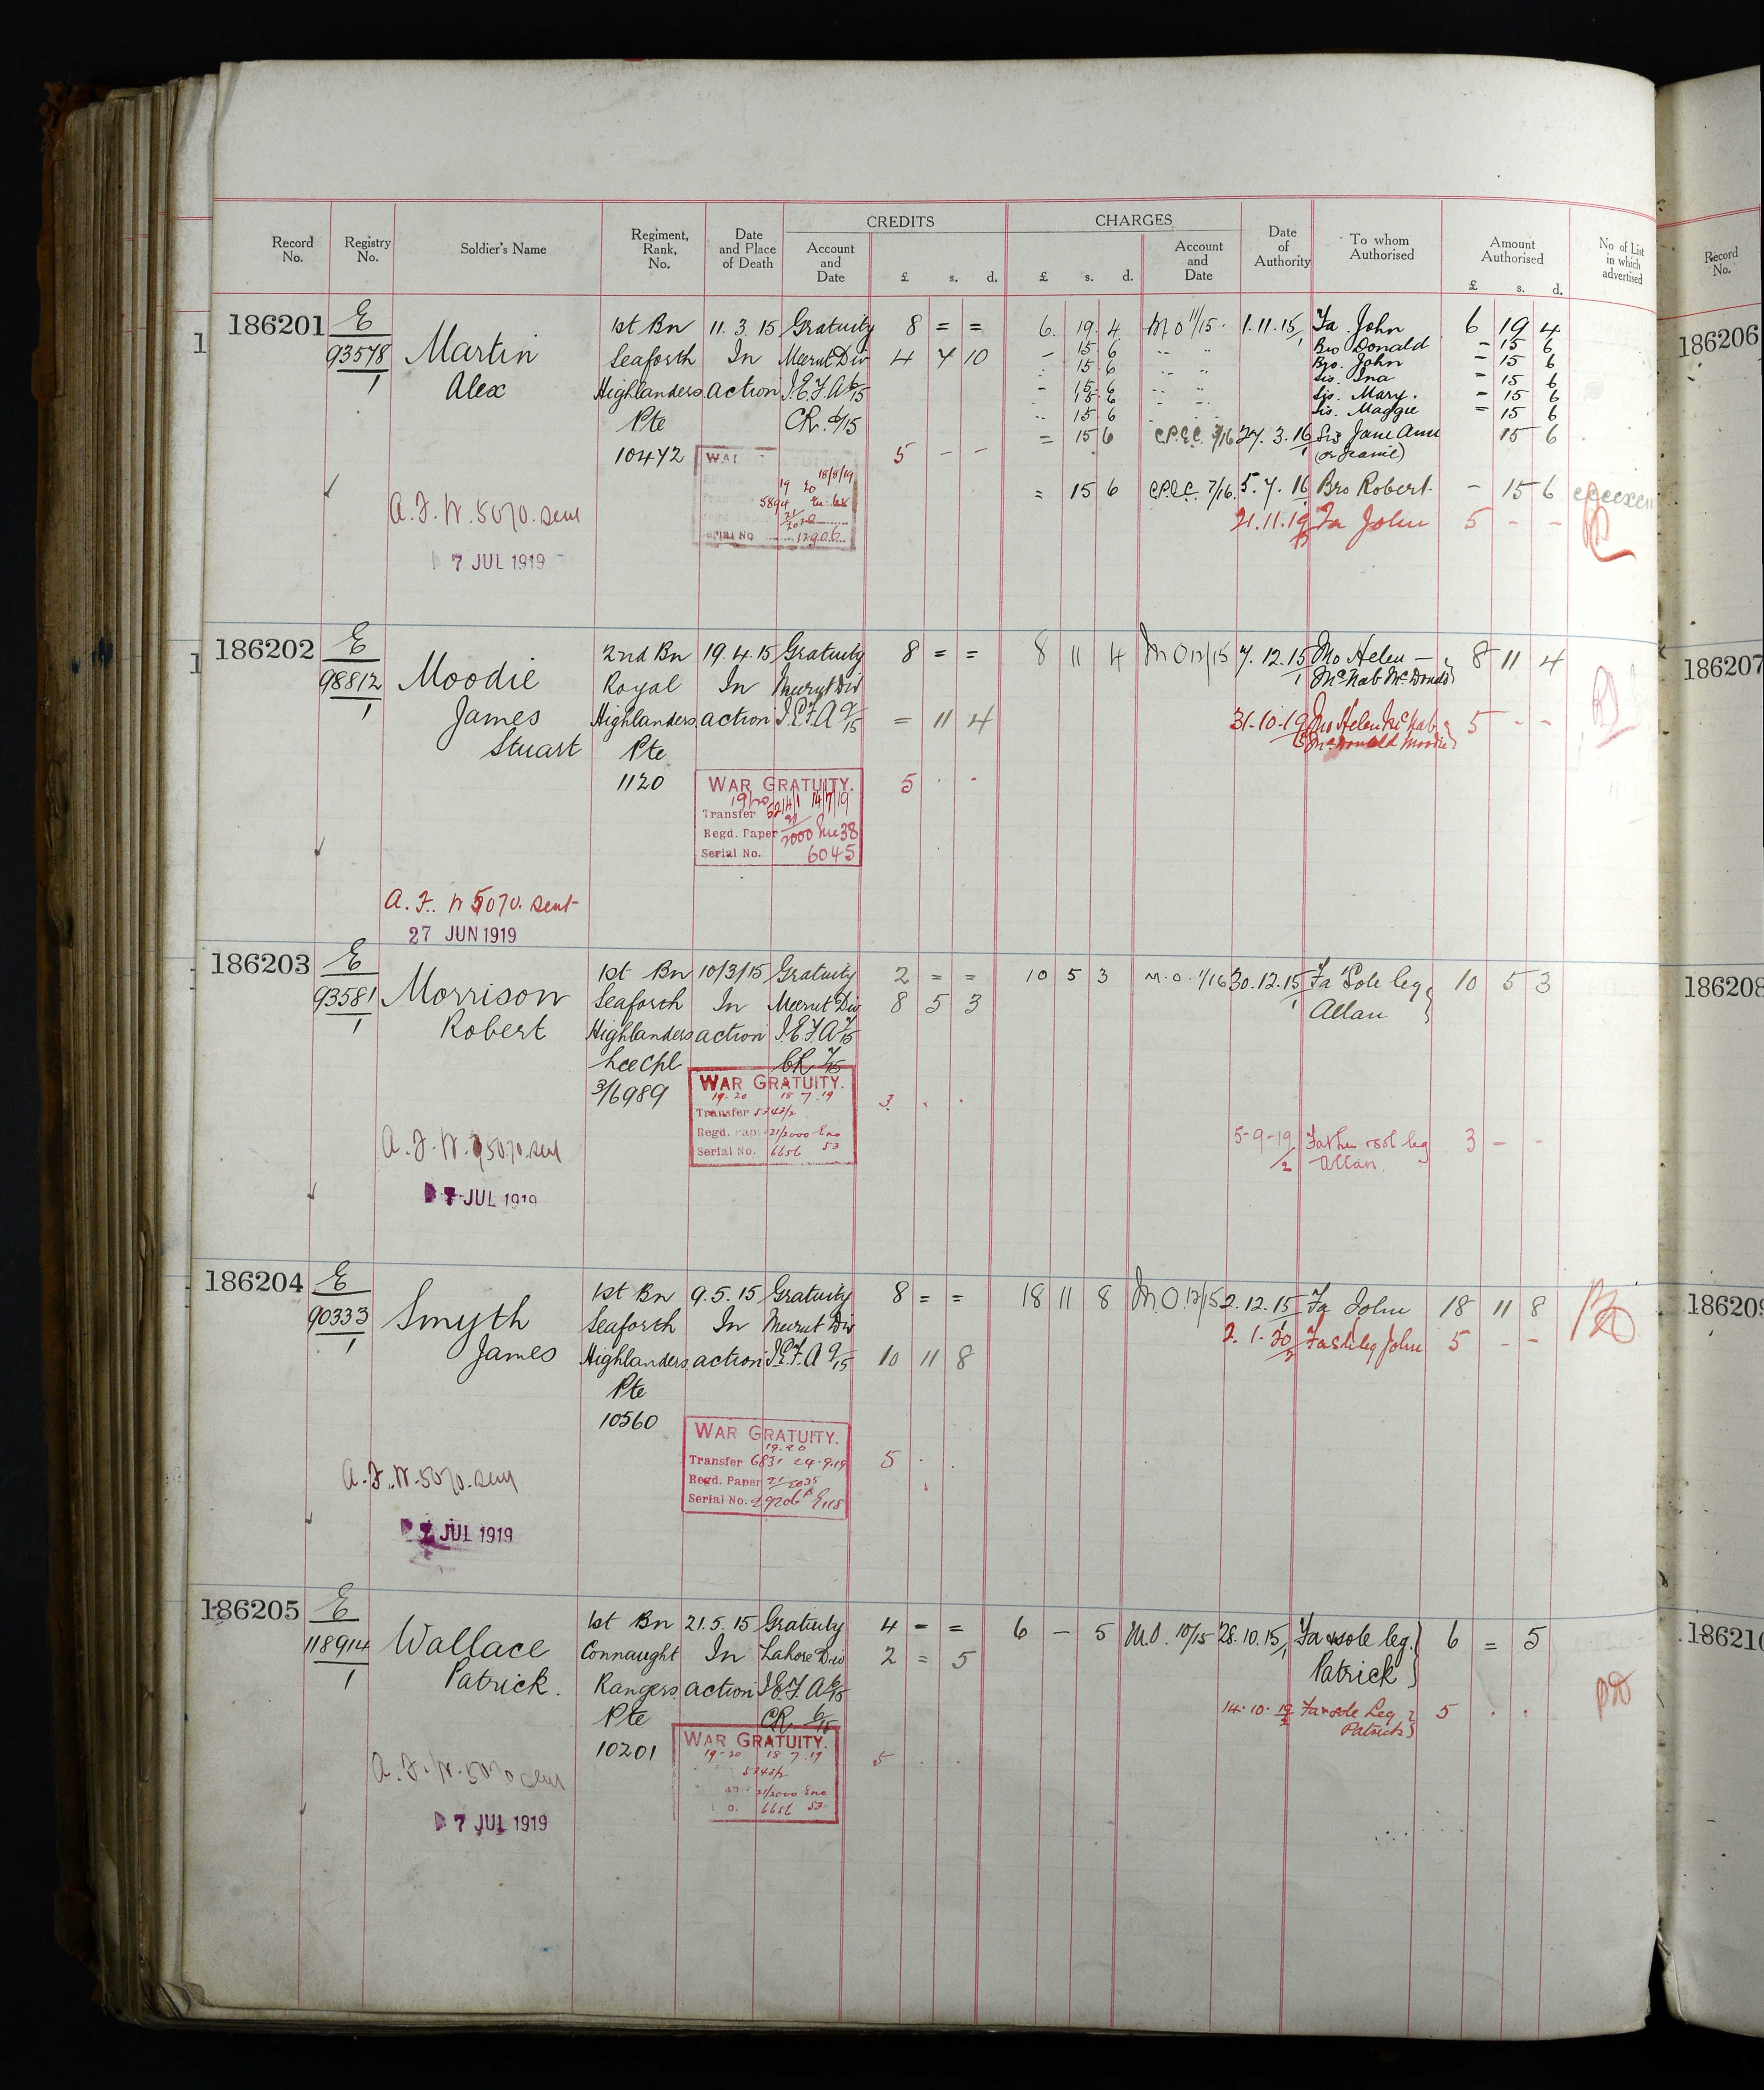 CREDITS CHARGES
Record No. Registry No. Soldier's Name Regiment, Rank, No. Date and Place of Death Account and Date £ s. d. £ s. d. Account and Date Date of Authority To whom Authorised Amount Authorised £ s. d. No of List in which advertised
Record No.
186201 E 1st Bn 11.3.15 Gratuity 8 = = 6 19 4 M O 11/15 1.11.15 Fa. John 6 19 4
93578 Martin Seaforth In Meerut Div 4 7 10 - 15 6 Bro Donald - 15 6
1 Alex Highlanders action I.E.F. A 6/15 15 6 Bro. John - 15 6
Sis. Ina - 15 6
- 15 6 Sis. Mary. - 15 6
15 6 Sis. Maggie = 15 6
Pte CR. 6/15 15 6
10472 = 15 6 27.3.16 Sis Jane Ann 15 6
(or Jeanie)
WAR 5 - -
18/8/19
19 20
5894
= 15 6 7/16 5.7.16 Bro Robert - 15 6
A.F.W. 5070. sent
21.11.19 Fa John 5 - -
Serial No
7 JUL 1919
186202 E 2nd Bn 19.4.15 Gratuity 8 = = 8 11 4 M O 12/15 7.12.15 Mo Helen - 8 11 4
98812 Moodie Royal In Meerut Div McNab McDonald
1 James Highlanders action I.E.F. A 9/15 = 11 4 31-10-19 Mo Helen McNab 5 - -
McDonald Moodie
Stuart Pte
1120 WAR GRATUITY. 5 . -
19/20
Transfer 5214/1 14/7/19
Regd. Paper 21/2000 Enc 38
Serial No. 6045
A.F. W 5070. sent
27 JUN 1919
186203 E 1st Bn 10/3/15 Gratuity 2 = = 10 5 3 M.O. 1/16 30.12.15 Fa Sole leg. 10 5 3
93581 Morrison Seaforth In Meerut Div 8 5 3 Allan
1 Robert Highlanders action I.E.F. A 7/15
Lce Cpl CR 7/15
3/6989 WAR GRATUITY. 3 . .
19-20 18 7.19
Transfer 5242/2
Regd. Pap 21/2000 Enc 53
Serial No. 6656
A.F.W. 5070. sent
5-9-19/2 Father & sol leg 3 - -
Allan.
7 JUL 1919
186204 E 1st Bn 9.5.15 Gratuity 8 = = 18 11 8 M.O. 12/15 2.12.15 Fa John 18 11 8
90333 Smyth Seaforth In Meerut Div 2.1.20 Fa S leg John 5 - -
1 James Highlanders action I.E.F. A 9/15 10 11 8
Pte
10560 WAR GRATUITY.
19-20
Transfer 6831 24.9.19 5 . .
Regd. Paper 21/2025
Serial No.
A.F.W. 5070. sent
JUL 1919
186205 E 1st Bn 21.5.15 Gratuity 4 - = 6 - 5 M.O. 10/15 28.10.15 Fa & sole leg. 6 = 5
118914 Wallace Connaught In Lahore Div 2 = 5 Patrick
1 Patrick. Rangers action I.E.F. A 6/15
Pte CR. 6/15 14.10.19 Fa & sole Leg 5 . .
Patrick
10201 WAR GRATUITY. 5 . .
19-20 18 7.19
5242/2
21/2000 Enc
6656 53
A.F.W. 5070 sent
7 JUL 1919
186206
186207
186208
186209
186210